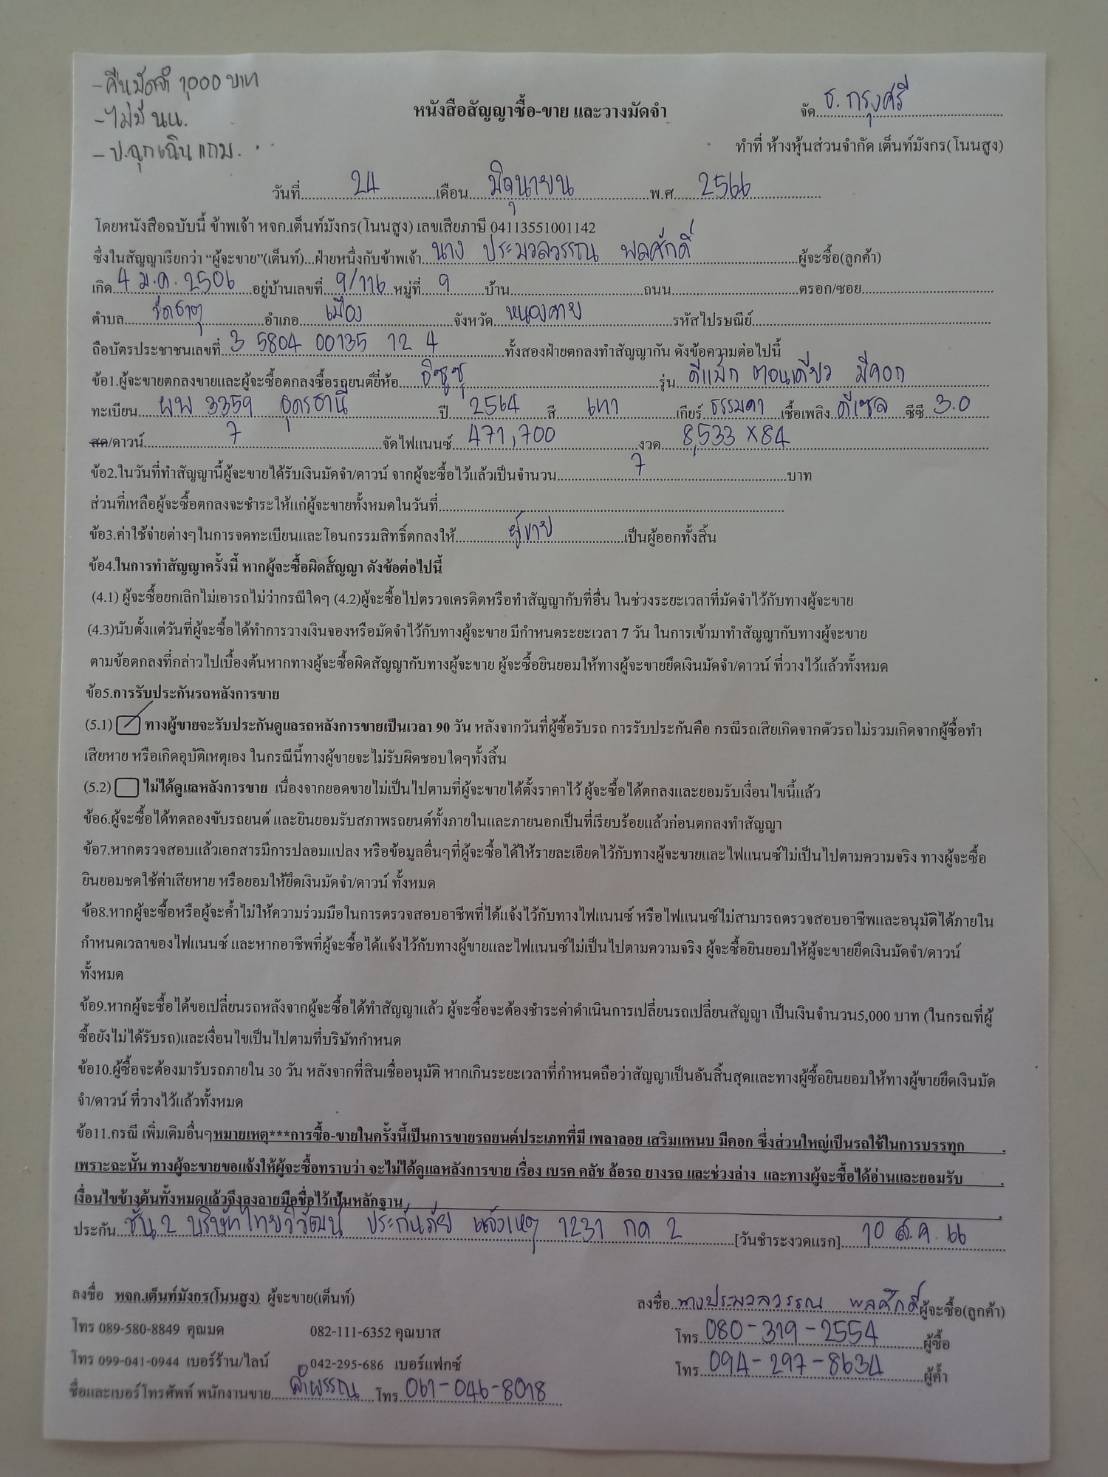 -คืนมัดจำ 1,000 บาท
-ไม่มี นน.
-ป.ฉุกเฉิน แถม.
หนังสือสัญญาซื้อ-ขาย และวางมัดจำ
จัด ธ. กรุงศรี
ทำที่ ห้างหุ้นส่วนจำกัด เต็นท์มังกร(โนนสูง)
วันที่ 24 เดือน มิถุนายน พ.ศ 2566
โดยหนังสือฉบับนี้ ข้าพเจ้า หจก.เต็นท์มังกร(โนนสูง) เลขเสียภาษี 04113551001142
ซึ่งในสัญญาเรียกว่า "ผู้จะขาย"(เต็นท์)...ฝ่ายหนึ่งกับข้าพเจ้า นาง ประมวลวรรณ พลศักดิ์ ผู้จะซื้อ(ลูกค้า)
เกิด 4 ม.ค. 2506 อยู่บ้านเลขที่ 9/116 หมู่ที่ 9 บ้าน ถนน ตรอก/ซอย
ตำบล วัดธาตุ อำเภอ เมือง จังหวัด หนองคาย รหัสไปรษณีย์
ถือบัตรประชาชนเลขที่ 3 5804 00135 12 4 ทั้งสองฝ่ายตกลงทำสัญญากัน ดังข้อความต่อไปนี้
ข้อ1.ผู้จะขายตกลงขายและผู้จะซื้อตกลงซื้อรถยนต์ยี่ห้อ อีซูซุ รุ่น ดีแม็ก ตอนเดียว มีคอก
ทะเบียน ผพ 3359 อุดรธานี ปี 2564 สี เทา เกียร์ ธรรมดา เชื้อเพลิง ดีเซล ซีซี 3.0
สด/ดาวน์ 7 จัดไฟแนนซ์ 471,700 งวด 8,533 x 84
ข้อ2.ในวันที่ทำสัญญานี้ผู้จะขายได้รับเงินมัดจำ/ดาวน์ จากผู้จะซื้อไว้แล้วเป็นจำนวน 7 บาท
ส่วนที่เหลือผู้จะซื้อตกลงจะชำระให้แก่ผู้จะขายทั้งหมดในวันที่
ข้อ3.ค่าใช้จ่ายต่างๆในการจดทะเบียนและโอนกรรมสิทธิ์ตกลงให้ ผู้ขาย เป็นผู้ออกทั้งสิ้น
ข้อ4.ในการทำสัญญาครั้งนี้ หากผู้จะซื้อผิดสัญญา ดังข้อต่อไปนี้
(4.1) ผู้จะซื้อยกเลิกไม่เอารถไม่ว่ากรณีใดๆ (4.2)ผู้จะซื้อไปตรวจเครดิตหรือทำสัญญากับที่อื่น ในช่วงระยะเวลาที่มัดจำไว้กับทางผู้จะขาย
(4.3)นับตั้งแต่วันที่ผู้จะซื้อได้ทำการวางเงินจองหรือมัดจำไว้กับทางผู้จะขาย มีกำหนดระยะเวลา 7 วัน ในการเข้ามาทำสัญญากับทางผู้จะขาย
ตามข้อตกลงที่กล่าวไปเบื้องต้นหากทางผู้จะซื้อผิดสัญญากับทางผู้จะขาย ผู้จะซื้อยินยอมให้ทางผู้จะขายยึดเงินมัดจำ/ดาวน์ ที่วางไว้แล้วทั้งหมด
ข้อ5.การรับประกันรถหลังการขาย
(5.1) ทางผู้ขายจะรับประกันดูแลรถหลังการขายเป็นเวลา 90 วัน หลังจากวันที่ผู้ซื้อรับรถ การรับประกันคือ กรณีรถเสียเกิดจากตัวรถไม่รวมเกิดจากผู้ซื้อทำ
เสียหาย หรือเกิดอุบัติเหตุเอง ในกรณีนี้ทางผู้ขายจะไม่รับผิดชอบใดๆทั้งสิ้น
(5.2) ไม่ได้ดูแลหลังการขาย เนื่องจากยอดขายไม่เป็นไปตามที่ผู้จะขายได้ตั้งราคาไว้ ผู้จะซื้อได้ตกลงและยอมรับเงื่อนไขนี้แล้ว
ข้อ6.ผู้จะซื้อได้ทดลองขับรถยนต์ และยินยอมรับสภาพรถยนต์ทั้งภายในและภายนอกเป็นที่เรียบร้อยแล้วก่อนตกลงทำสัญญา
ข้อ7.หากตรวจสอบแล้วเอกสารมีการปลอมแปลง หรือข้อมูลอื่นๆที่ผู้จะซื้อได้ให้รายละเอียดไว้กับทางผู้จะขายและไฟแนนซ์ไม่เป็นไปตามความจริง ทางผู้จะซื้อ
ยินยอมชดใช้ค่าเสียหาย หรือยอมให้ยึดเงินมัดจำ/ดาวน์ ทั้งหมด
ข้อ8.หากผู้จะซื้อหรือผู้จะค้ำไม่ให้ความร่วมมือในการตรวจสอบอาชีพที่ได้แจ้งไว้กับทางไฟแนนซ์ หรือไฟแนนซ์ไม่สามารถตรวจสอบอาชีพและอนุมัติได้ภายใน
กำหนดเวลาของไฟแนนซ์ และหากอาชีพที่ผู้จะซื้อได้แจ้งไว้กับทางผู้ขายและไฟแนนซ์ไม่เป็นไปตามความจริง ผู้จะซื้อยินยอมให้ผู้จะขายยึดเงินมัดจำ/ดาวน์
ทั้งหมด
ข้อ9.หากผู้จะซื้อได้ขอเปลี่ยนรถหลังจากผู้จะซื้อได้ทำสัญญาแล้ว ผู้จะซื้อจะต้องชำระค่าดำเนินการเปลี่ยนรถเปลี่ยนสัญญา เป็นเงินจำนวน5,000 บาท (ในกรณที่ผู้
ซื้อยังไม่ได้รับรถ)และเงื่อนไขเป็นไปตามที่บริษัทกำหนด
ข้อ10.ผู้ซื้อจะต้องมารับรถภายใน 30 วัน หลังจากที่สินเชื่ออนุมัติ หากเกินระยะเวลาที่กำหนดถือว่าสัญญาเป็นอันสิ้นสุดและทางผู้ซื้อยินยอมให้ทางผู้ขายยึดเงินมัด
จำ/ดาวน์ ที่วางไว้แล้วทั้งหมด
ข้อ11.กรณี เพิ่มเติมอื่นๆหมายเหตุ***การซื้อ-ขายในครั้งนี้เป็นการขายรถยนต์ประเภทที่มี เพลาลอย เสริมแหนบ มีคอก ซึ่งส่วนใหญ่เป็นรถใช้ในการบรรทุก
เพราะฉะนั้น ทางผู้จะขายขอแจ้งให้ผู้จะซื้อทราบว่า จะไม่ได้ดูแลหลังการขาย เรื่อง เบรค คลัช ล้อรถ ยางรถ และช่วงล่าง และทางผู้จะซื้อได้อ่านและยอมรับ
เงื่อนไขข้างต้นทั้งหมดแล้วจึงลงลายมือชื่อไว้เป็นหลักฐาน
ประกัน ชั้น 2 บริษัท ไทยวิวัฒน์ ประกันภัย แจ้งเหตุ 1231 กด 2 [วันชำระงวดแรก] 10 ส.ค. 66
ลงชื่อ หจก.เต็นท์มังกร(โนนสูง) ผู้จะขาย(เต็นท์)
ลงชื่อ นางประมวลวรรณ พลศักดิ์ ผู้จะซื้อ(ลูกค้า)
โทร 089-580-8849 คุณมด 082-111-6352 คุณบาส
โทร 080-319-2554 ผู้ซื้อ
โทร 099-041-0944 เบอร์ร้าน/ไลน์ 042-295-686 เบอร์แฟกซ์
โทร 094-297-8634 ผู้ค้ำ
ชื่อและเบอร์โทรศัพท์ พนักงานขาย คำพรรณ โทร 061-046-8018